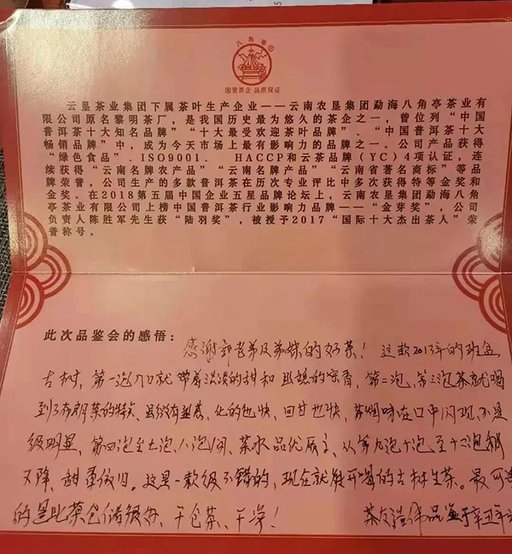 八角亭
国营茶企 品质保证
云垦茶业集团下属茶叶生产企业——云南农垦集团勐海八角亭茶业有
限公司原名黎明茶厂，是我国历史最为悠久的茶企之一，曾位列“中国
普洱茶十大知名品牌”“十大最受欢迎茶叶品牌”、“中国普洱茶十大
畅销品牌”中，成为今天市场上最有影响力的品牌之一。公司产品获得
“绿色食品”、ISO9001、 HACCP和云茶品牌（YC）4项认证，连
续获得“云南名牌农产品”“云南名牌产品”“云南省著名商标”等品
牌荣誉，公司生产的多款普洱茶在历次专业评比中多次获得特等金奖和
金奖。在2018第五届中国企业五星品牌论坛上，云南农垦集团勐海八角
亭茶业有限公司上榜中国普洱茶行业影响力品牌——“金芽奖”，公司
负责人陈胜军先生获“陆羽奖”，被授予2017“国际十大杰出茶人”荣
誉称号。
此次品鉴会的感悟：
感谢郭老弟及弟妹的好茶！这款2013年的班盆
古树，第一泡入口就带着淡淡的甜和 的 香，第二泡、第三泡茶就喝
到了布朗茶的特点，虽然有苦 ，化的也快，回甘也快，苦 味在口中闪现，不是
级明显，第四泡至七泡、八泡间，茶水品优质了，从第九泡十泡至十二泡
又降，甜重依旧。这是一款级不错的，现在就能开喝的古树生茶。最可
的是此茶仓储级好，干仓茶、干净！
茶友